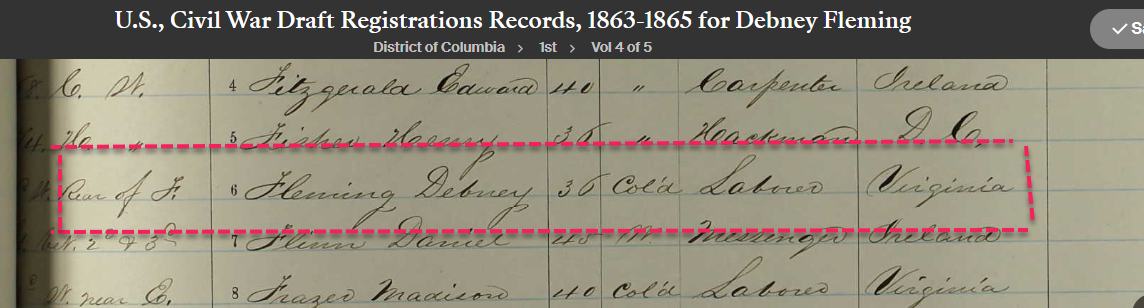 U.S., Civil War Draft Registrations Records, 1863-1865 for Debney Fleming
District of Columbia > 1st > Vol 4 of 5
C. W. 4 Fitzgerald Edward 40 " Carpenter Ireland
5 Fisher Henry 36 " Hackman D. C.
Rear of F. 6 Fleming Debney 36 Col'd Laborer Virginia
bet. 2d & 3d 7 Flinn Daniel 45 W. Messenger Ireland
W. near E. 8 Frazer Madison 40 Col'd Laborer Virginia